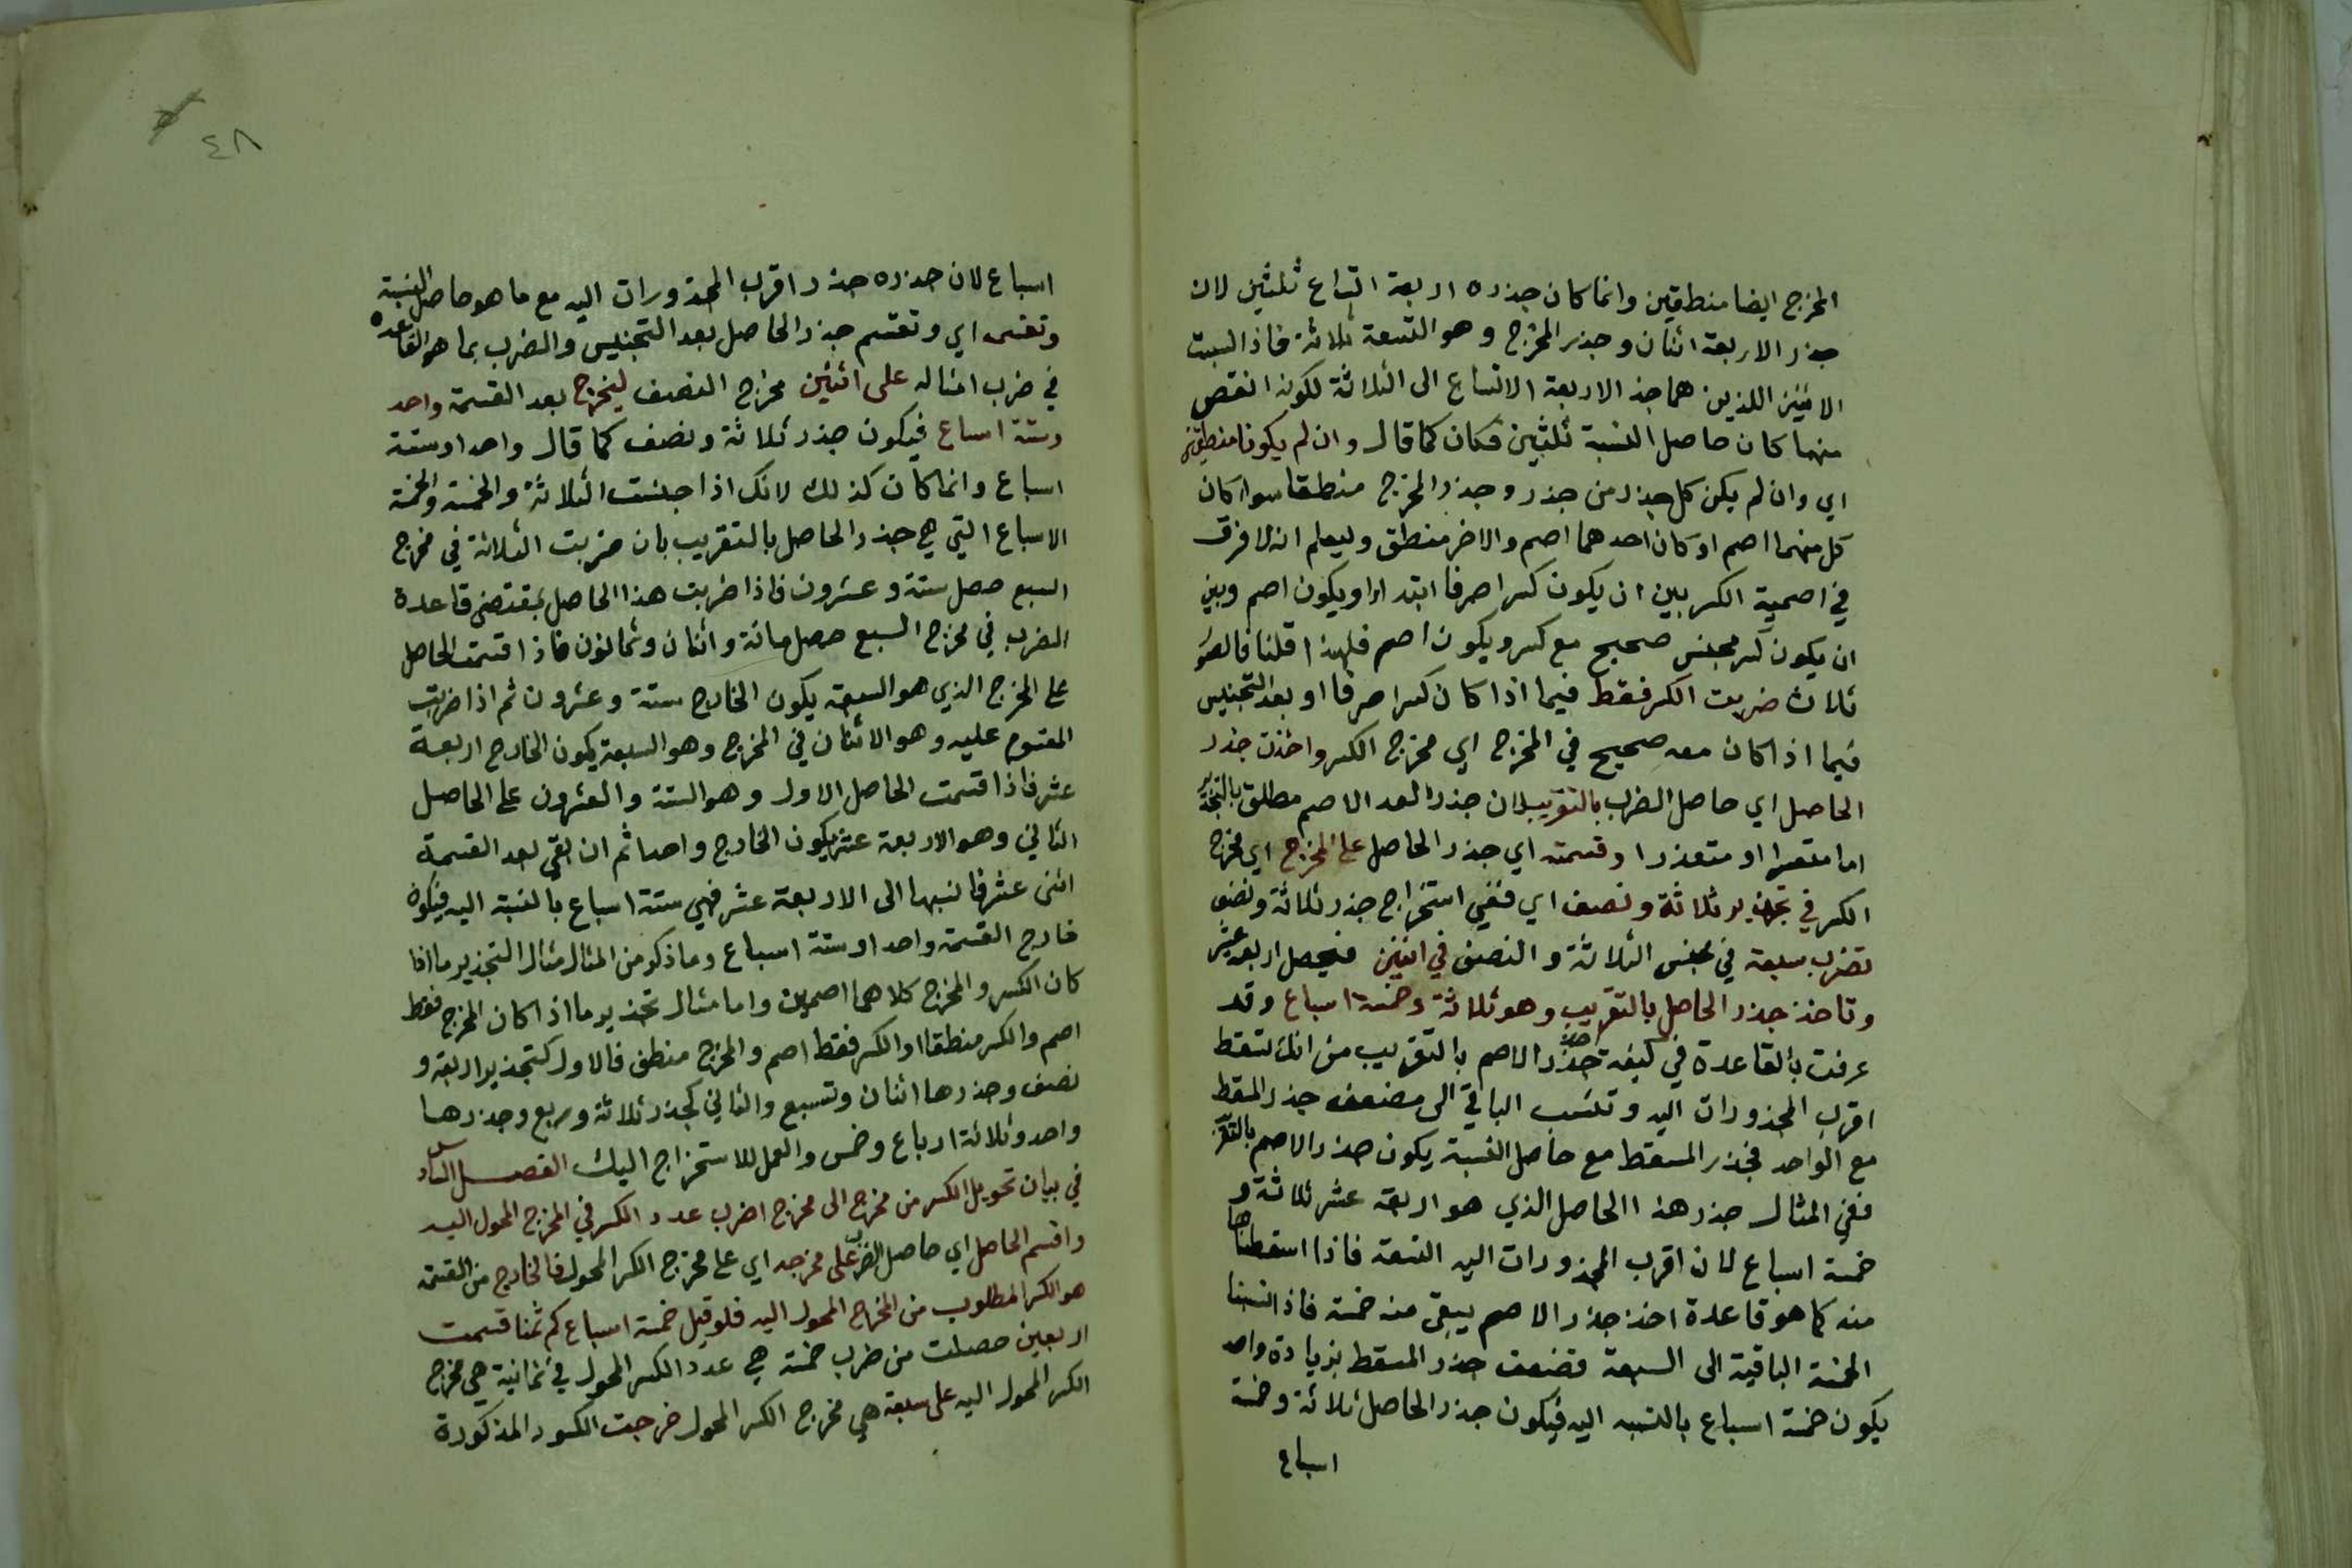 المخرج ايضا منطقين وانما كان جذره اربعة اتساع ثلثين لان
جذر الاربعة اثنان وجذر المخرج وهو التسعة ثلاثة فاذا نسبت
الاثنين اللذين هما جذر الاربعة الاتساع الى الثلاثة لكونه انقص
منها كان حاصل النسبة ثلثين فكان كما قال وان لم يكونا منطقين
اي وان لم يكن كل جذر من جذر وجذر المخرج منطقا سواء كان
كل منهما اصم او كان احدهما اصم والاخر منطق وليعلم انه لا فرق
في اصمية الكسر بين ان يكون كسرا صرفا ابتداء او يكون اصم وبين
ان يكون كسر مجنس صحيح مع كسر ويكون اصم فلهذا قلنا فالصور
ثلاث ضربت الكسر فقط فيما اذا كان كسرا صرفا او بعد التجنيس
فيما اذا كان معه صحيح في المخرج اي مخرج الكسر واخذت جذر
الحاصل اي حاصل الضرب بالتقريب لان جذر العدد الاصم مطلق بالتجذير
اما متعسرا او متعذرا وقسمته اي جذر الحاصل على المخرج اي مخرج
الكسر في تجذير ثلاثة ونصف اي ففي استخراج جذر ثلاثة ونصف
تضرب سبعة في مجنس الثلاثة والنصف في اثنين فيحصل اربعة عشر
وتاخذ جذر الحاصل بالتقريب وهو ثلاثة وخمسة اسباع وقد
عرفت بالقاعدة في كيفية اخذ جذر الاصم بالتقريب من انك تسقط
اقرب المجذورات اليه وتنسب الباقي الى مضعف جذر المسقط
مع الواحد فجذر المسقط مع حاصل النسبة يكون جذر الاصم بالتقريب
ففي المثال جذر هذا الحاصل الذي هو اربعة عشر ثلاثة و
خمسة اسباع لان اقرب المجذورات اليه التسعة فاذا اسقطناها
منه كما هو قاعدة اخذ جذر الاصم يبقى منه خمسة فاذا نسبنا
الخمسة الباقية الى السبعة مضعف جذر المسقط بزيادة واحد
يكون خمسة اسباع بالنسبة اليه فيكون جذر الحاصل ثلاثة وخمسة
اسباع
٤٨
اسباع لان جذره جذر اقرب المجذورات اليه مع ما هو حاصل النسبة
وتقسمه اي وتقسم جذر الحاصل بعد التجنيس والضرب بما هو القاعدة
في ضرب امثاله على اثنين مخرج النصف ليخرج بعد القسمة واحد
وستة اسباع فيكون جذر ثلاثة ونصف كما قال واحدا وستة
اسباع وانما كان كذلك لانك اذا جنست الثلاثة والخمسة والخمسة
الاسباع التي هي جذر الحاصل بالتقريب بان ضربت الثلاثة في مخرج
السبع حصل ستة وعشرون فاذا ضربت هذا الحاصل بمقتضى قاعدة
الضرب في مخرج السبع حصل مائة واثنان وثمانون فاذا قسمت الحاصل
على المخرج الذي هو السبعة يكون الخارج ستة وعشرون ثم اذا ضربت
المقسوم عليه وهو الاثنان في المخرج وهو السبعة يكون الخارج اربعة
عشر فاذا قسمت الحاصل الاول وهو الستة والعشرون على الحاصل
الثاني وهو الاربعة عشر يكون الخارج واحدا ثم ان بقي بعد القسمة
اثنى عشر فانسبها الى الاربعة عشر فهي ستة اسباع بالنسبة اليه فيكون
خارج القسمة واحدا وستة اسباع وما ذكر من المثال مثال التجذير ما اذا
كان الكسر والمخرج كلاهما اصمين واما مثال تجذير ما اذا كان المخرج فقط
اصم والكسر منطقا او الكسر فقط اصم والمخرج منطق فالاول كتجذير اربعة و
نصف وجذرها اثنان وتسبع والثاني كجذر ثلاثة وربع وجذرها
واحد وثلاثة ارباع وخمس والعمل للاستخراج اليك الفصل السادس
في بيان تحويل الكسر من مخرج الى مخرج اضرب عدد الكسر في المخرج المحول اليه
واقسم الحاصل اي حاصل الضرب على مخرجه اي على مخرج الكسر المحول فالخارج من القسمة
هو الكسر المطلوب من المخرج المحول اليه فلو قيل خمسة اسباع كم ثمنا قسمت
اربعين حصلت من ضرب خمسة هي عدد الكسر المحول في ثمانية هي مخرج
الكسر المحول اليه على سبعة هي مخرج الكسر المحول خرجت الكسور المذكورة